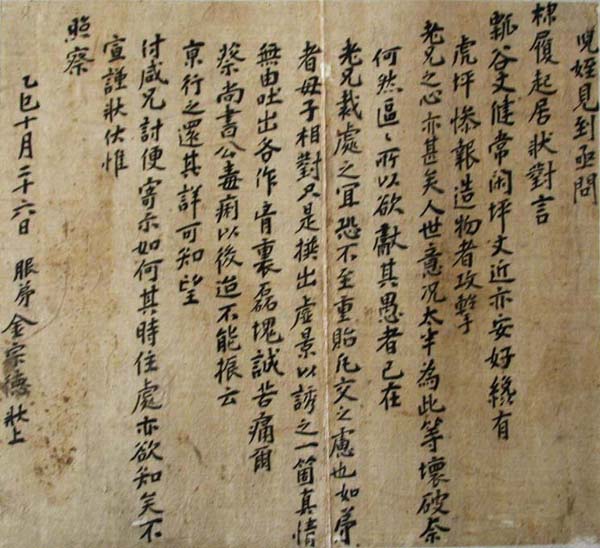 兕姪見到亟問
棣履起居狀對言
瓢谷丈健常闲坪丈近亦安好纔有
虎坪慘報造物者攻擊
老兄之心亦甚矣人世意况太半為此等壞破奈
何然區〻所以欲獻其愚者已在
老兄裁處之宜恐不至重貽凡交之慮也如弟
者母子相對只是撰出虛景以誘之一箇真情
無由吐出各作肯裏磊塊誠苦痛爾
蔡尚書公毒痢以後迨不能振云
京行之還其詳可知望
付咸兄討便寄示如何其時住處亦欲知矣不
宣謹狀伏惟
照察
乙巳十月二十六日 服弟金宗德狀上